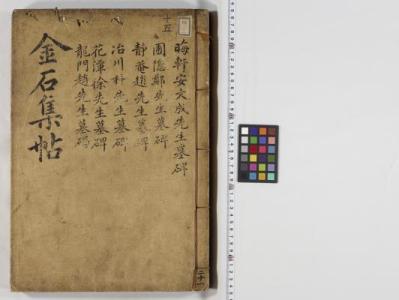 十五
晦軒安文成先生墓碑
圃隱鄭先生墓碑
靜菴趙先生墓碑
冶川朴先生墓碑
花潭徐先生墓碑
龍門趙先生墓碣
金石集帖